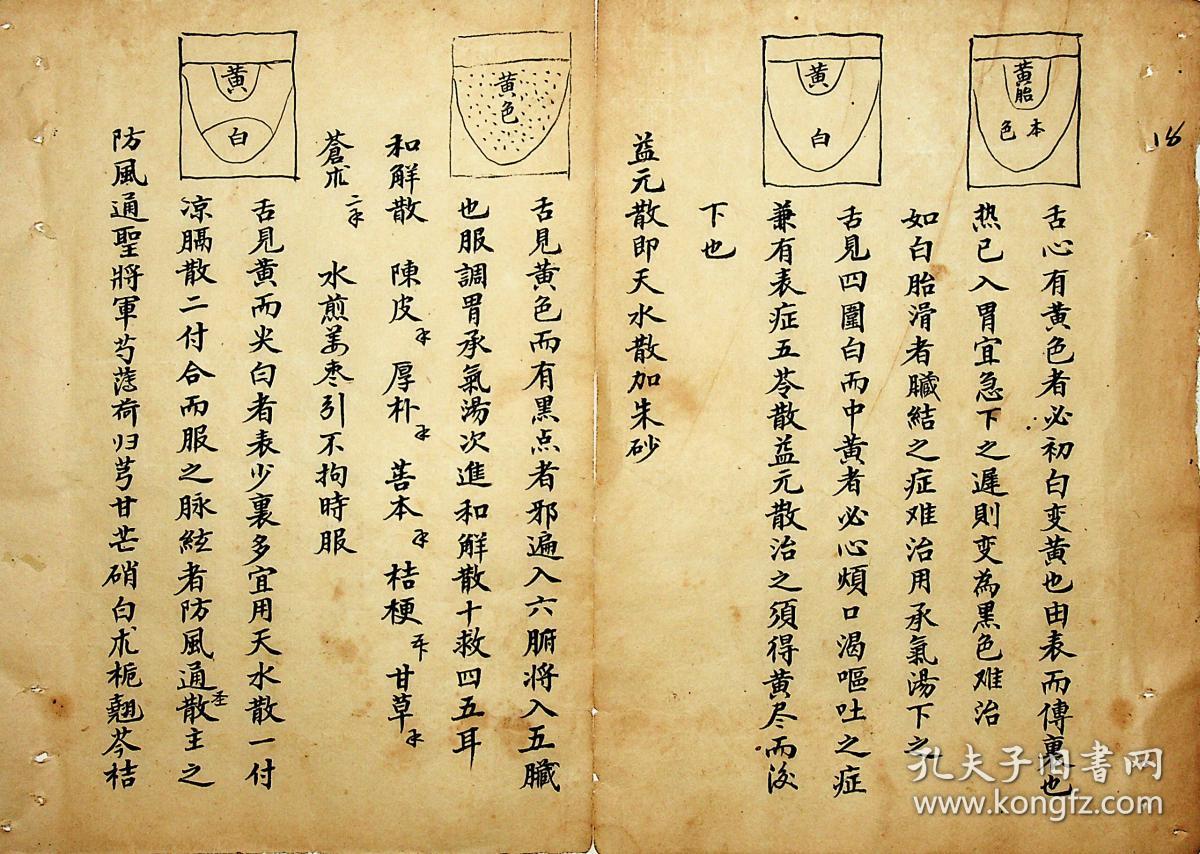 18
黄胎
本色
舌心有黄色者必初白变黄也由表而傳裏也
热已入胃宜急下之遲則变為黑色难治
如白胎滑者臟結之症难治用承氣湯下之
黄
白
舌見四圍白而中黄者必心煩口渴嘔吐之症
兼有表症五苓散益元散治之須得黄尽而後
下也
益元散即天水散加朱砂
黄色
舌見黄色而有黑点者邪遍入六腑将入五臟
也服調胃承氣湯次進和解散十救四五耳
和解散 陳皮 厚朴 藁本 桔梗 甘草
蒼朮 水煎姜枣引不拘時服
黄
白
舌見黄而尖白者表少裏多宜用天水散一付
凉膈散二付合而服之脉絃者防風通圣散主之
防風通聖將軍芍薄荷归芎甘芒硝白朮栀翹芩桔
孔夫子旧书网
www.kongfz.com